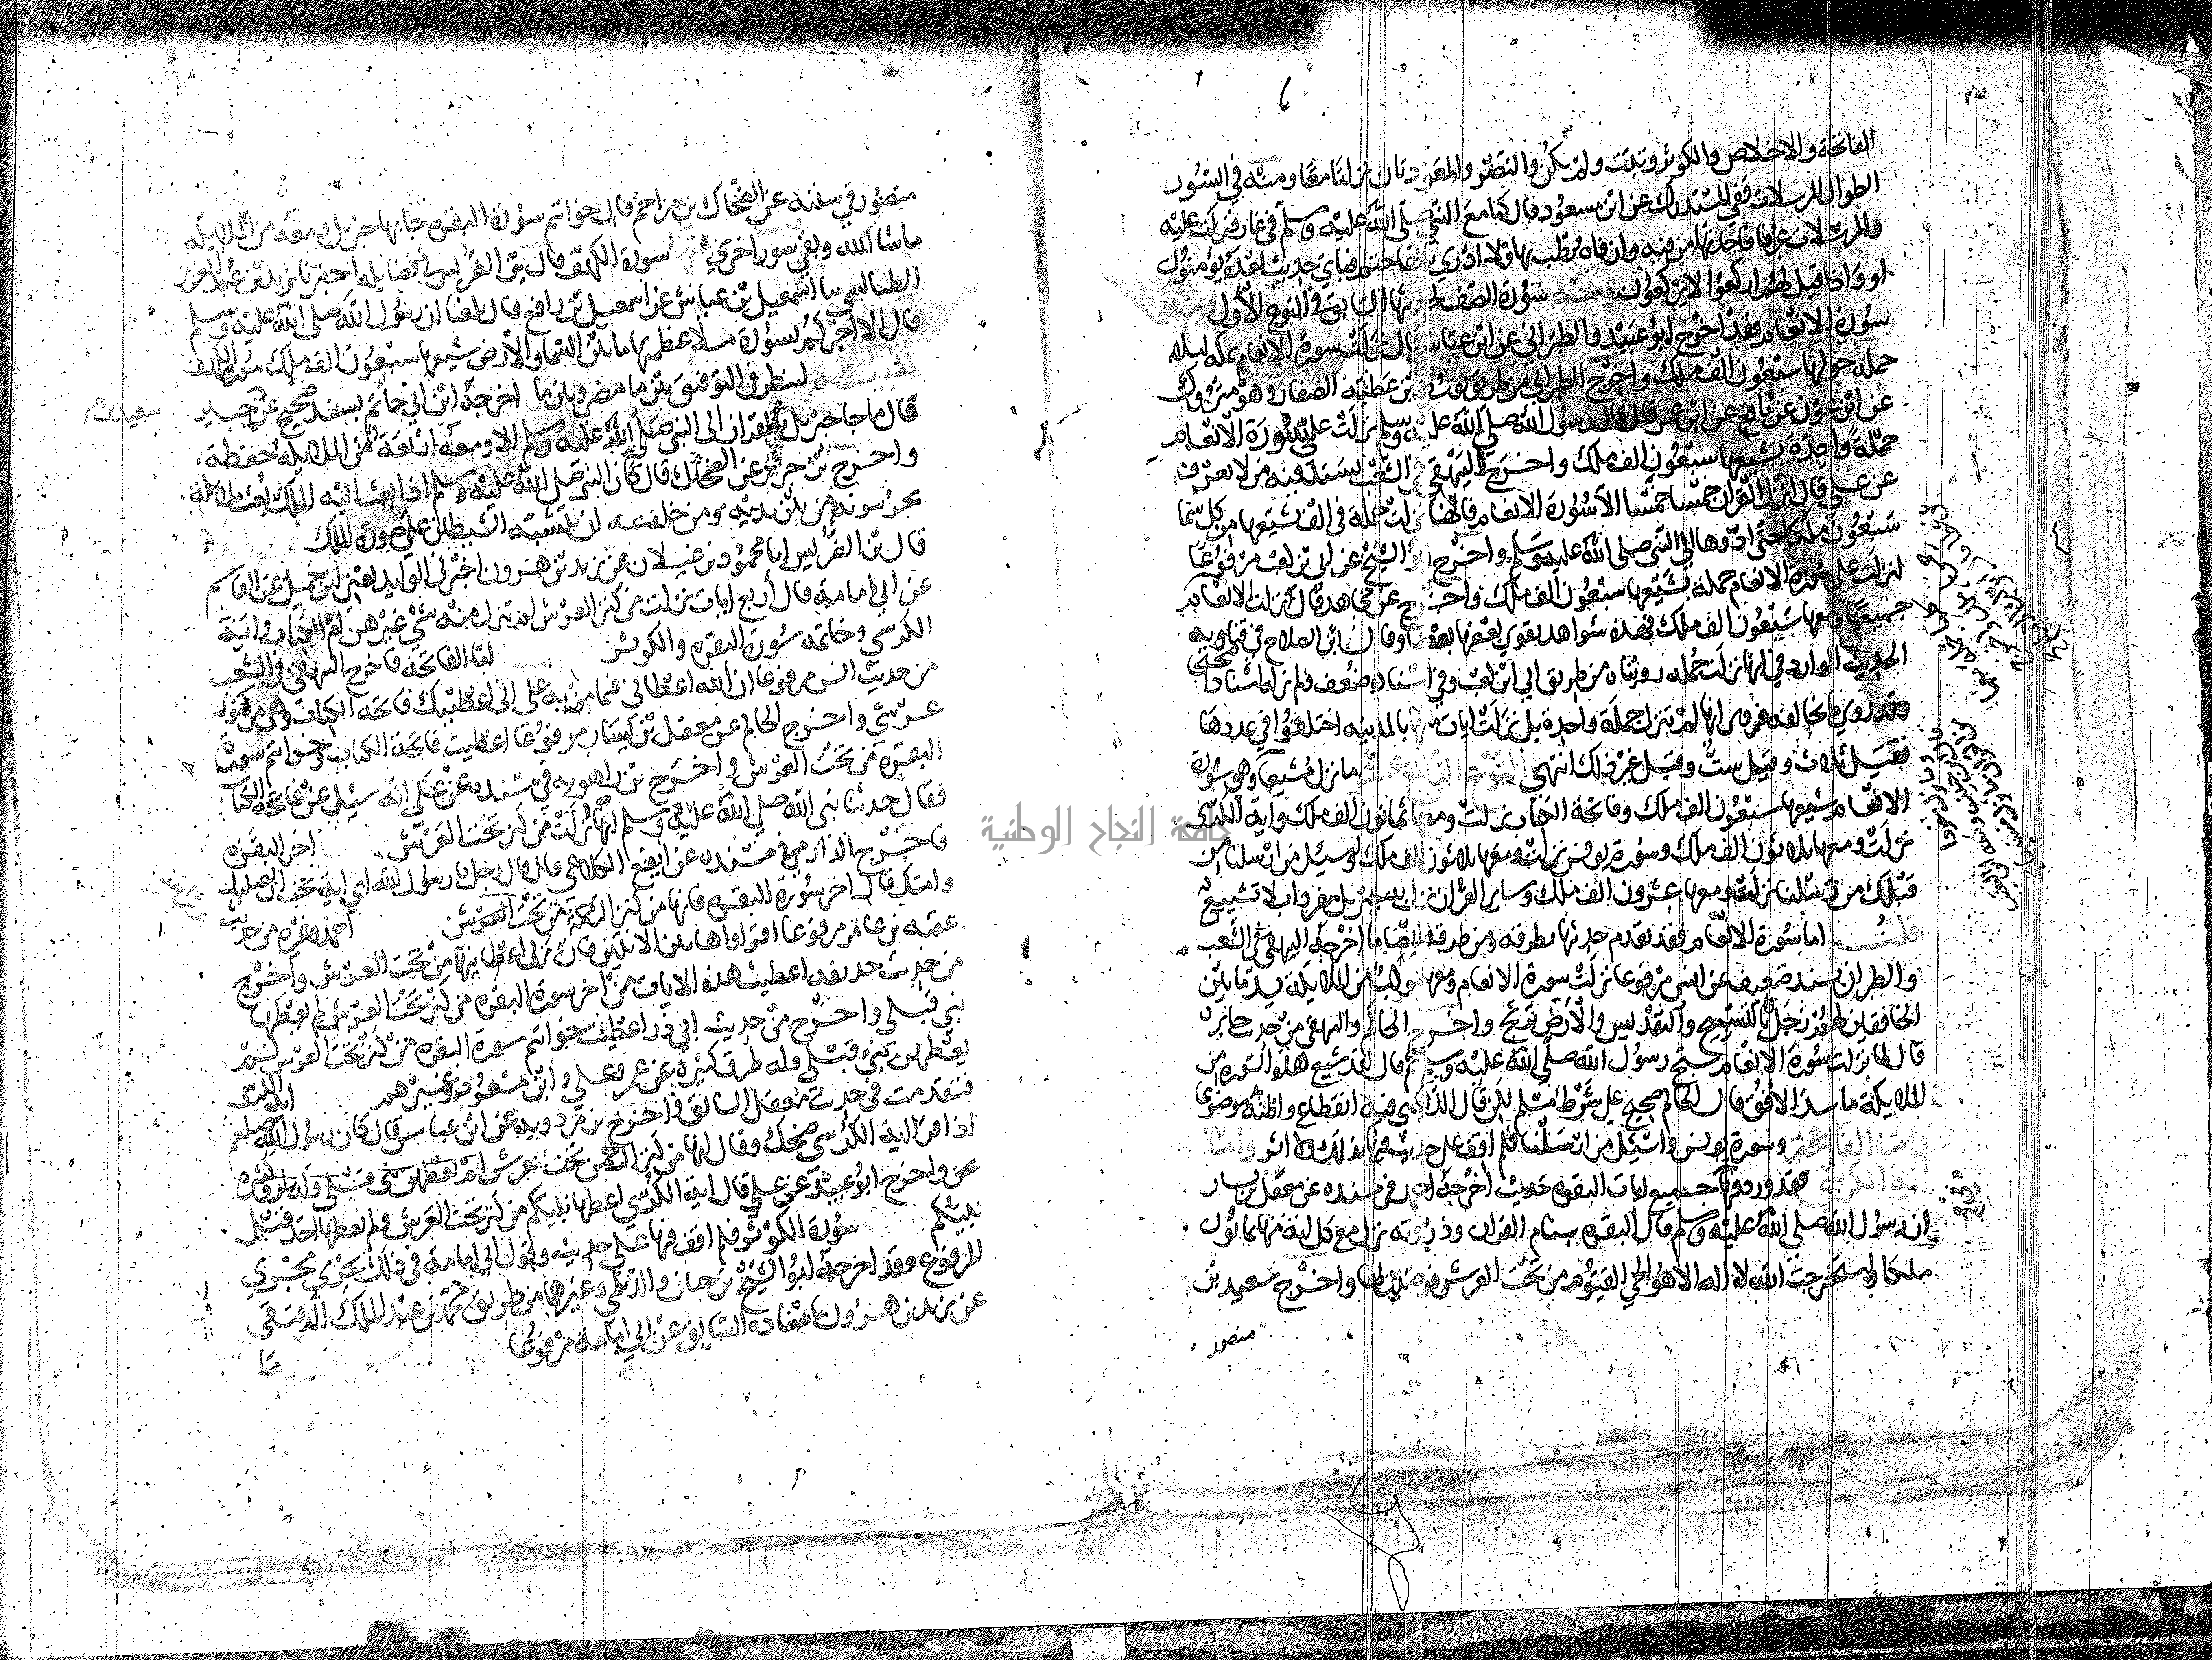 الفاتحة والاخلاص والكوثر وتبت ولم يكن والنصر والمعوذتان نزلتا معا ومنه في السور
الطوال المرسلات ففي المستدرك عن ابن مسعود قال كنا مع النبي صلى الله عليه وسلم في غار فنزلت عليه
والمرسلات عرفا فاخذتها من فيه وان فاه رطب بها فلا ادري بايها ختم فباي حديث بعده يؤمنون
او واذا قيل لهم اركعوا لا يركعون ومنه سورة الصف لحديثها السابق في النوع الاول ومنه
سورة الانعام فقد اخرج ابو عبيد والطبراني عن ابن عباس قال نزلت سورة الانعام بمكه ليلا
جمله حولها سبعون الف ملك واخرج الطبراني من طريق يوسف بن عطيه الصفار وهو متروك
عن ابن عون عن نافع عن ابن عمر قال قال رسول الله صلى الله عليه وسلم نزلت علي سورة الانعام
جملة واحدة يشيعها سبعون الف ملك واخرج البيهقي في الشعب بسند فيه من لا يعرف
عن علي قال انزل القران خمسا خمسا الا سورة الانعام فانها نزلت جملة في الف يشيعها من كل سما
سبعون ملكا حتى ادوها الى النبي صلى الله عليه وسلم واخرج ابو الشيخ عن ابي بن كعب مرفوعا
انزلت علي سورة الانعام جملة يشيعها سبعون الف ملك واخرج عن مجاهد قال نزلت الانعام
جميعها ومعها سبعون الف ملك فهذه شواهد يقوي بعضها بعضا وقال ابن الصلاح في فتاويه
الحديث الوارد في انها نزلت جمله رويناه من طريق ابي ابن كعب وفي اسناده ضعف ولم نر له اسنادا صحيحا
وقد روي ما يخالفه فروي انها لم تنزل جملة واحدة بل نزلت ايات منها بالمدينه اختلفوا في عددها
فقيل ثلاث وقيل ست وقيل غير ذلك انتهى النوع الرابع عشر ما نزل مشيعا وهو سورة
الانعام شيعها سبعون الف ملك وفاتحة الكتاب نزلت ومعها ثمانون الف ملك واية الكرسي
نزلت ومعها ثلاثون الف ملك وسورة يونس نزلت ومعها ثلاثون الف ملك وسيل من ارسلنا من
قبلك من رسلنا نزلت ومعها عشرون الف ملك وساير القران نزل به جبريل مفردا بلا تشييع
قلت اما سورة الانعام فقد تقدم حديثها بطرقه ومن طرقه ايضا ما اخرجه البيهقي في الشعب
والطبراني بسند ضعيف عن انس مرفوعا نزلت سورة الانعام ومعها موكب من الملايكة يسد ما بين
الخافقين لهم زجل بالتسبيح والتقديس والارض ترتج واخرج الحاكم والبيهقي من حديث جابر
قال لما نزلت سورة الانعام سبح رسول الله صلى الله عليه وسلم ثم قال لقد شيع هذه السورة من
الملايكة ما سد الافق قال الحاكم صحيح على شرط مسلم لكن قال الذهبي فيه انقطاع واظنه موضوعا
واما الفاتحة وسورة يونس واسئل من ارسلنا فلم اقف على حديث فيها بذلك ولا اثر واما
اية الكرسي فقد ورد فيها وفي جميع ايات البقرة حديث اخرجه احمد في مسنده عن معقل بن يسار
ان رسول الله صلى الله عليه وسلم قال البقره سنام القران وذروته نزل مع كل اية منها ثمانون
ملكا واستخرجت الله لا اله الا هو الحي القيوم من تحت العرش فوصلت بها واخرج سعيد بن
منصور
منصور في سننه عن الضحاك بن مزاحم قال خواتم سورة البقره جا بها جبريل ومعه من الملايكه
ما شا الله وبقي سور اخرى منها سورة الكهف قال بن الضريس في فضايله اخبرنا يزيد بن عبد العزيز
الطيالسي ثنا اسمعيل بن عياش عن اسمعيل بن رافع قال بلغنا ان رسول الله صلى الله عليه وسلم
قال الا اخبركم بسورة ملا عظمها ما بين السما والارض شيعها سبعون الف ملك سورة الكهف
تنبيه لينظر في التوفيق بين ما مضى وبين ما اخرجه ابن ابي حاتم بسند صحيح عن سعيد بن جبير
قال ما جا جبريل بالقران الى النبي صلى الله عليه وسلم الا ومعه اربعة من الملايكه حفظة
واخرج بن جرير عن الضحاك قال كان النبي صلى الله عليه وسلم اذا بعث اليه الملك بعث ملايكة
يحرسونه من بين يديه ومن خلفه ان يتشبه الشيطان على صورة الملك
قال بن الضريس انا محمود بن غيلان عن يزيد بن هرون اخبرني الوليد يعني ابن جميل عن القاسم
عن ابي امامة قال اربع ايات نزلت من كنز العرش لم ينزل منه شي غيرهن ام الكتاب واية
الكرسي وخاتمه سورة البقره والكوثر اما الفاتحة فاخرج البيهقي في الشعب
من حديث انس مرفوعا ان الله اعطاني فيما من به علي اني اعطيتك فاتحة الكتاب وهي من كنوز
عرشي واخرج الحاكم عن معقل بن يسار مرفوعا اعطيت فاتحة الكتاب وخواتم سورة
البقره من تحت العرش واخرج بن راهويه في مسنده عن علي انه سئيل عن فاتحة الكتاب
فقال حدثنا نبي الله صلى الله عليه وسلم انها نزلت من كنز تحت العرش اخر البقره
فاخرج الدارمي في مسنده عن ايفع الكلاعي قال قال رجل يا رسول الله اي اية تحب ان تصيبك
وامتك قال اخر سورة البقره فانها من كنز الرحمة من تحت العرش احمد وغيره من حديث
عقبه بن عامر مرفوعا اقرؤا هاتين الايتين فان ربي اعطانيهما من تحت العرش واخرج
من حديث حذيفه اعطيت هذه الايات من اخر سورة البقره من كنز تحت العرش لم يعطها
نبي قبلي واخرج من حديث ابي ذر اعطيت خواتم سورة البقره من كنز تحت العرش لم
يعطهن نبي قبلي وله طرق كثيرة عن عمر وعلي وابن مسعود وغيرهم اية الكرسي
فتقدمت في حديث معقل السابق واخرج بن مردويه عن ابن عباس قال كان رسول الله صلعم
اذا قرا اية الكرسي ضحك وقال انها من كنز الرحمن تحت العرش
واخرج ابو عبيد عن علي قال اية الكرسي اعطيها نبيكم من كنز تحت العرش ولم يعطها احد قبل
نبيكم سورة الكوثر فلم اقف فيها على حديث وقول ابي امامة في ذلك يجري مجرى
المرفوع وقد اخرجه ابو الشيخ بن حبان والديلمي وغيرهما من طريق محمد بن عبد الملك الدقيقي
عن يزيد بن هرون باسناده السابق عن ابي امامة مرفوعا
جامعة النجاح الوطنية